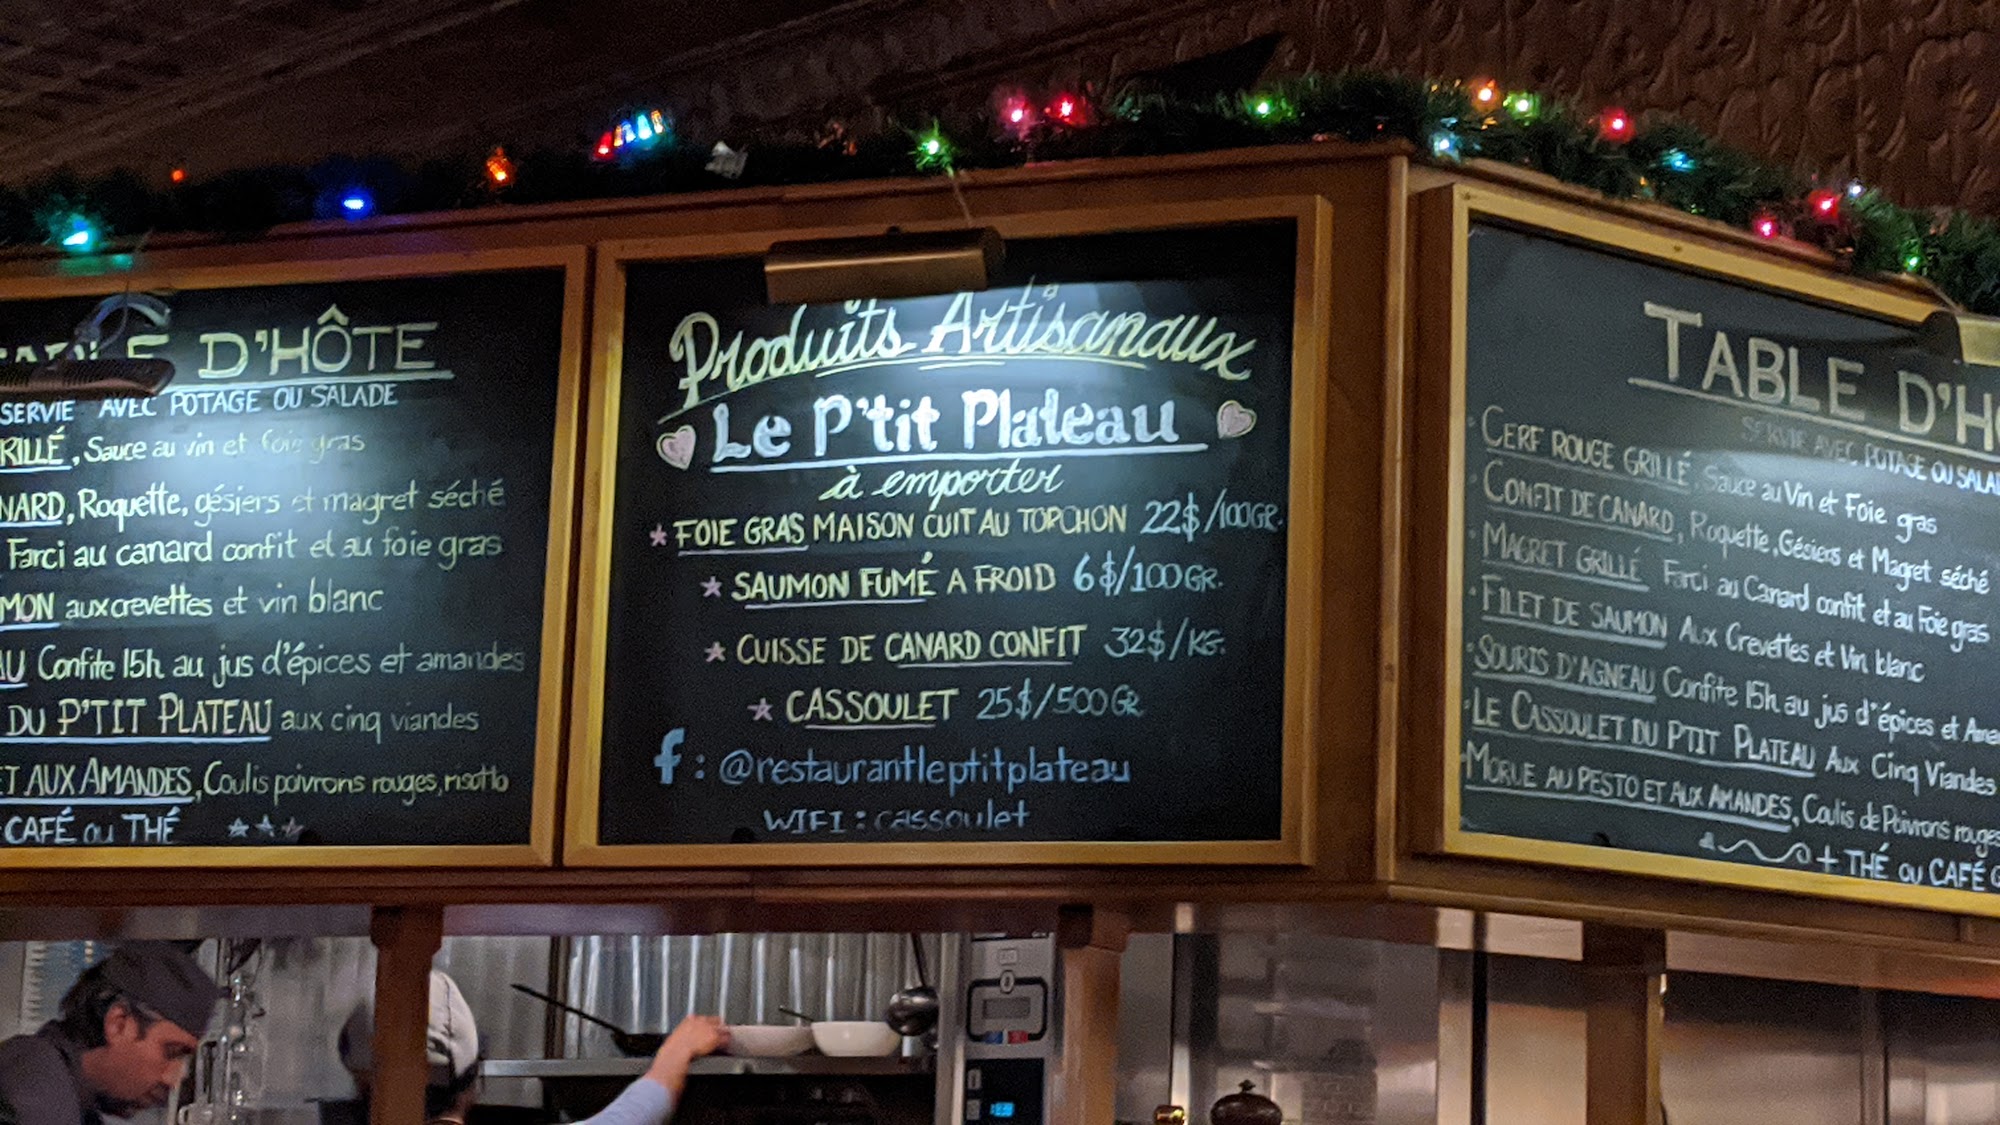 D'HÔTE
SERVIE AVEC POTAGE OU SALADE
RILLÉ, Sauce au vin et foie gras
NARD, Roquette, gésiers et magret séché
Farci au canard confit et au foie gras
MON aux crevettes et vin blanc
AU Confite 15h au jus d'épices et amandes
DU P'TIT PLATEAU aux cinq viandes
ET AUX AMANDES, Coulis poivrons rouges, risotto
CAFÉ ou THÉ
Produits Artisanaux
Le P'tit Plateau
à emporter
FOIE GRAS MAISON CUIT AU TOPCHON 22$/100GR.
SAUMON FUMÉ A FROID 6$/100GR.
CUISSE DE CANARD CONFIT 32$/KG.
CASSOULET 25$/500GR
f : @restaurantleptitplateau
WIFI : cassoulet
TABLE D'HÔ
SERVIE AVEC POTAGE OU SALA
CERF ROUGE GRILLÉ, Sauce au Vin et Foie gras
CONFIT DE CANARD, Roquette, Gésiers et Magret séché
MAGRET GRILLÉ Farci au Canard confit et au Foie gras
FILET DE SAUMON Aux Crevettes et Vin blanc
SOURIS D'AGNEAU Confite 15h au jus d'épices et Ama
LE CASSOULET DU P'TIT PLATEAU Aux Cinq Viandes
MORUE AU PESTO ET AUX AMANDES, Coulis de Poivrons rouges
+ THÉ ou CAFÉ